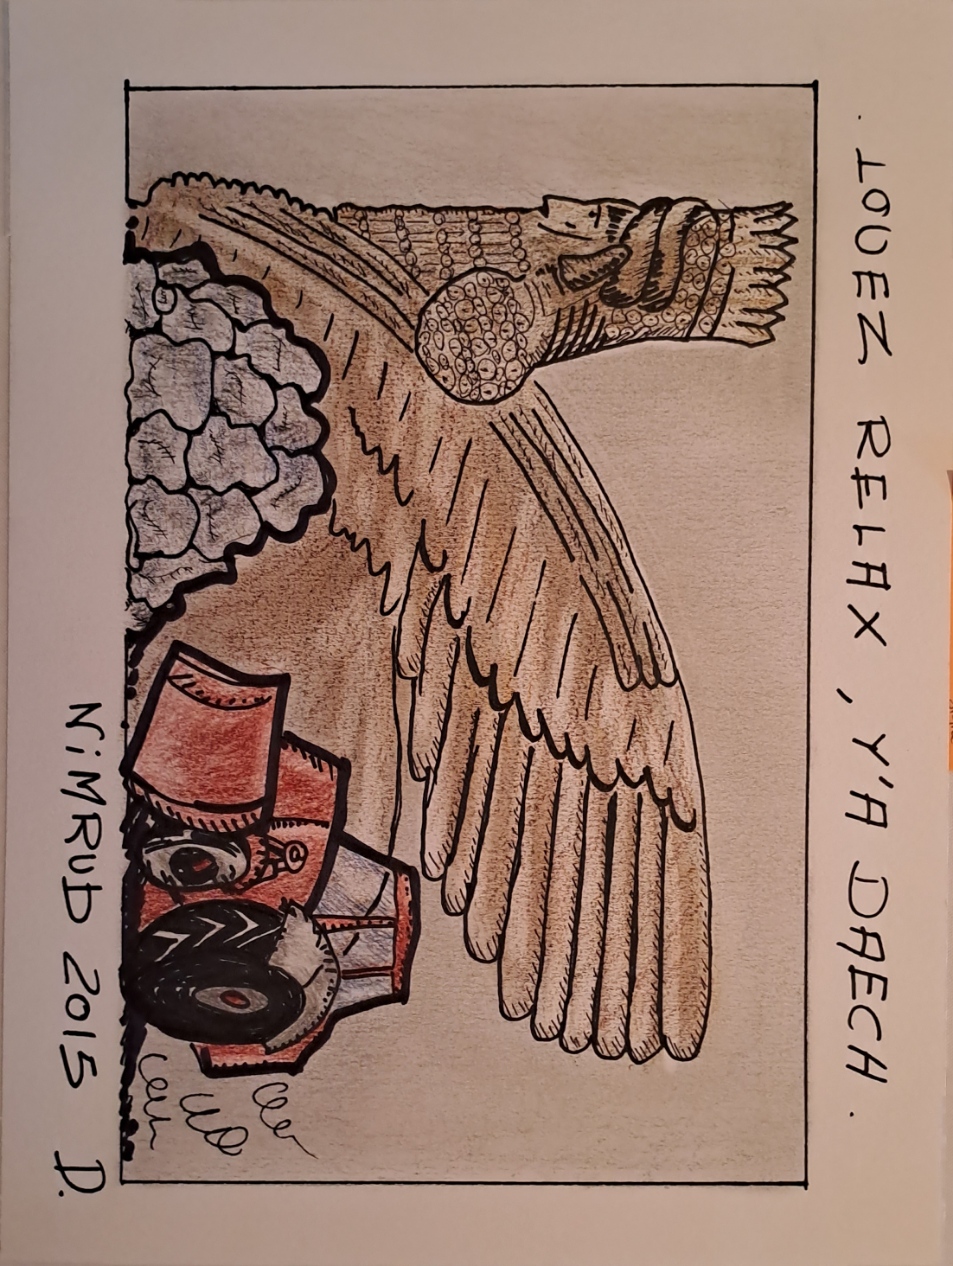 . LOUEZ RELAX , Y'A DAECH .
NiMRUD 2015 D.